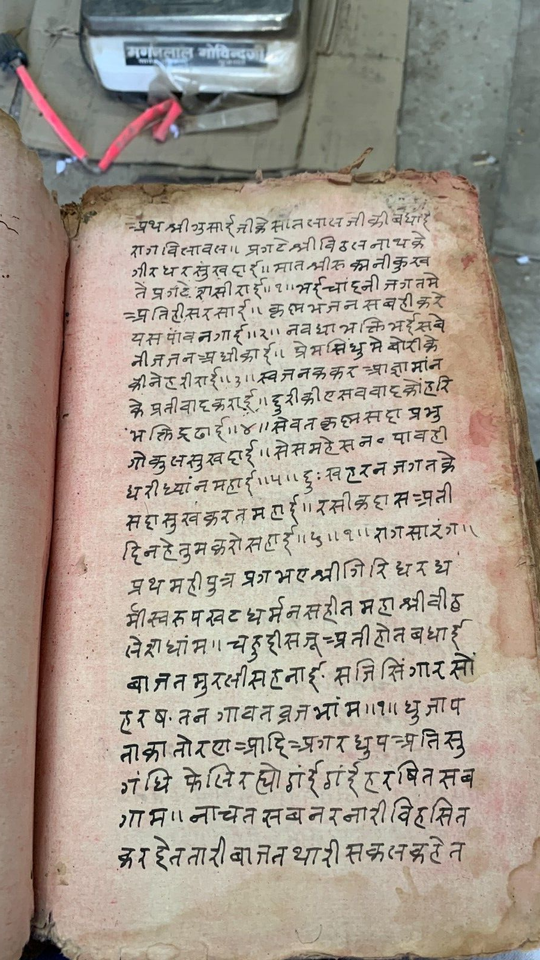 मगनलाल गोविन्दजी
अथ श्री गुसाईजीके सातलालजीकी बधाई
राग बिलावल॥ प्रगटे श्री विठलनाथ के
गीरधर सुखदाई॥ मात श्री रुक्मनी कुख
ते प्रगटे रासीराई॥१॥ भई चांदनी जगतमे
अतिही सरसाई॥ कृष्ण भजन सबही करे
यस पांवन गाई॥२॥ नवधा भक्ति भई सबे
नीज जन अधीकाई॥ प्रेम सिंधु मे बोरीके
कीने हरीराई॥३॥ स्वजनक कर आज्ञा मान
के प्रतीवाद कराई॥ दुरी कीए सब वाद को हरि
भक्ति द्रढाई॥४॥ सेवत कृष्ण सदा प्रभु
गोकुल सुखदाई॥ सेस महेस न पावही
धरी ध्यांन महाई॥५॥ दुःख हरन जगत के
सदा सुख करत महाई॥ रसीकदास अती
दिन हे तुम करो सहाई॥६॥१॥ राग सारंग॥
प्रथमही पुत्र प्रगभए श्री गिरिधर ध
र्मी स्वरुप खट धर्मन सहीत महा श्री वीठ
लेश धांम॥ चहुदीस जू अती होत बधाई
बाजत मुरली सहनाई॰ सजि सिंगार सों
हरष॰ तन गावत व्रज भांम॥१॥ धुजा प
ताका तोरण आदि अगर धुप अति सु
गंधि फेलि रह्यो ठांई ठांई हरषित सब
गाम॥ नाचत सब नर नारी विहसित
कर देत तारी बाजत थारी सकल कहेत